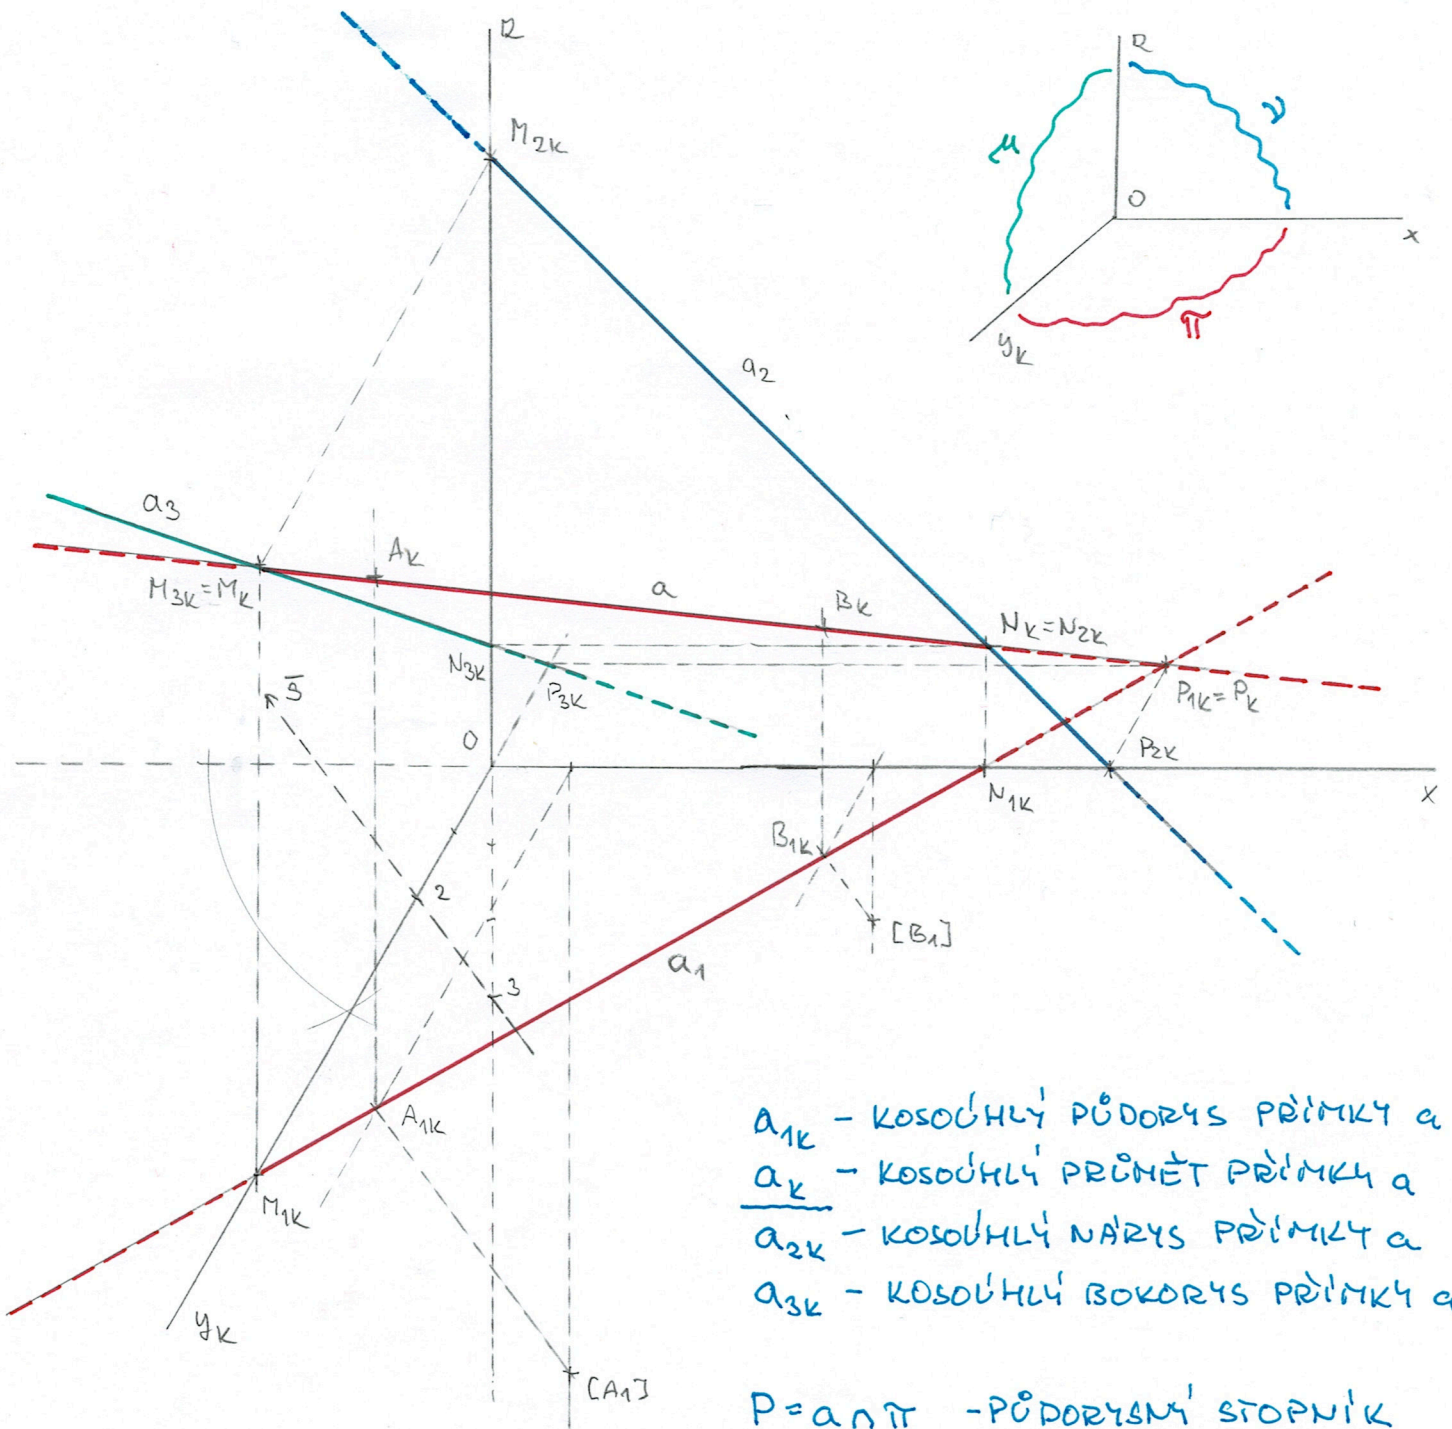 z
M2K
a2
a3
AK
M3K=MK
a
BK
NK=N2K
N3K
P3K
P1K=PK
s̄
O
P2K
x
N1K
B1K
2
[B1]
3
a1
A1K
M1K
yK
[A1]
z
ν
μ
O
x
π
yK
a1K - KOSOÚHLÝ PŮDORYS PŘÍMKY a
aK - KOSOÚHLÝ PRŮMĚT PŘÍMKY a
a2K - KOSOÚHLÝ NÁRYS PŘÍMKY a
a3K - KOSOÚHLÝ BOKORYS PŘÍMKY a
P=a∩π - PŮDORYSNÝ STOPNÍK